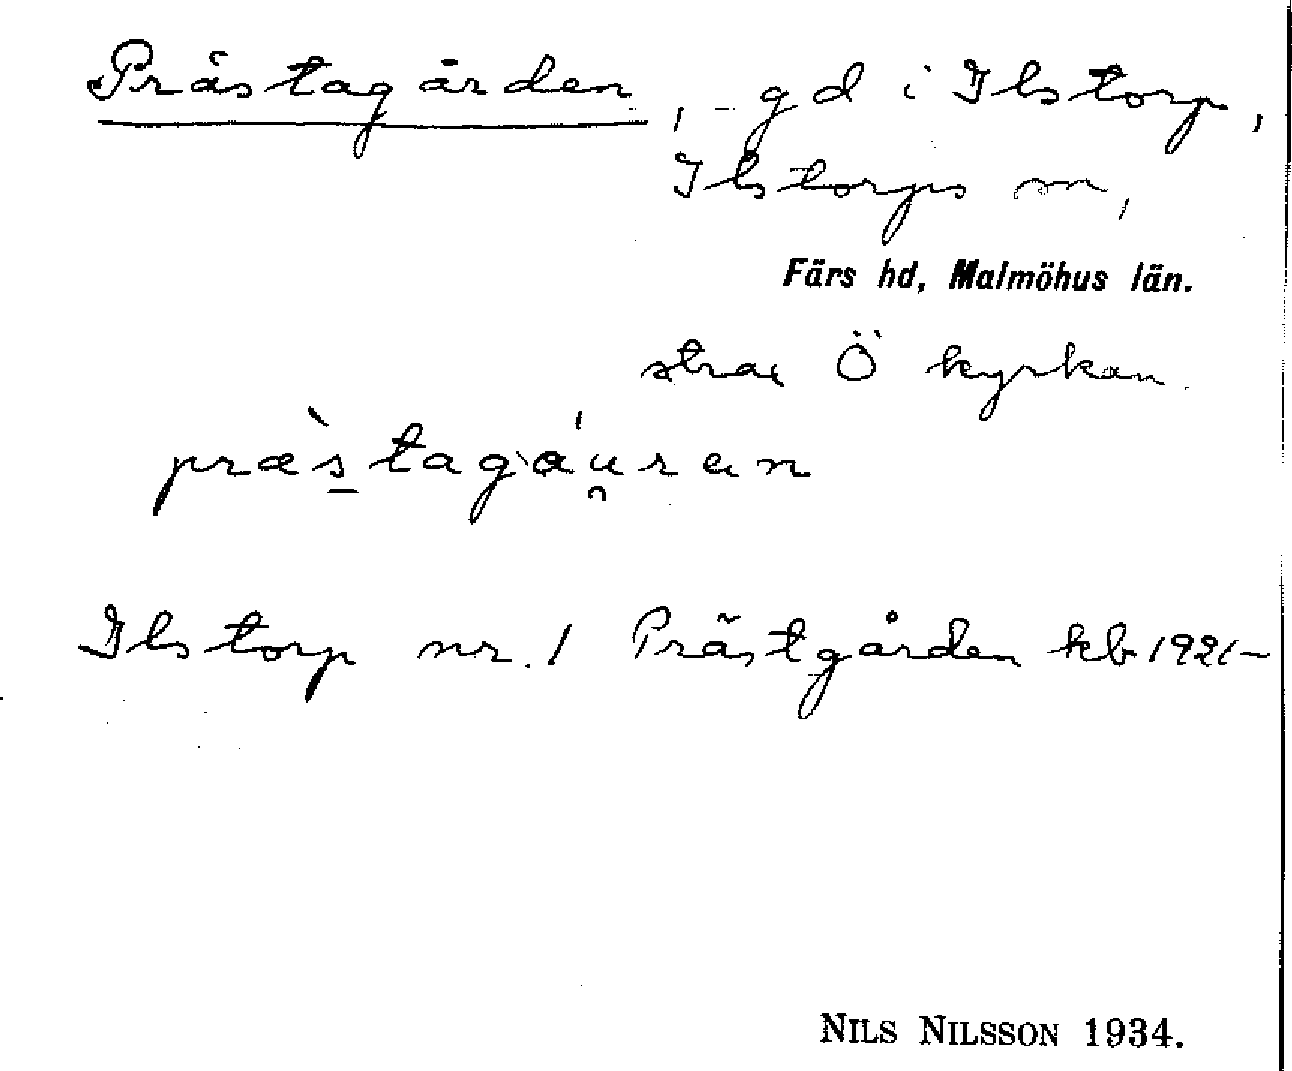 Prästagården, gd i Ilstorp,
Ilstorps sn,
Färs hd, Malmöhus län.
strax Ö kyrkan.
præ̀s̱tagáu̯ran
Ilstorp nr. 1 Prästgården kb 1921–
NILS NILSSON 1934.